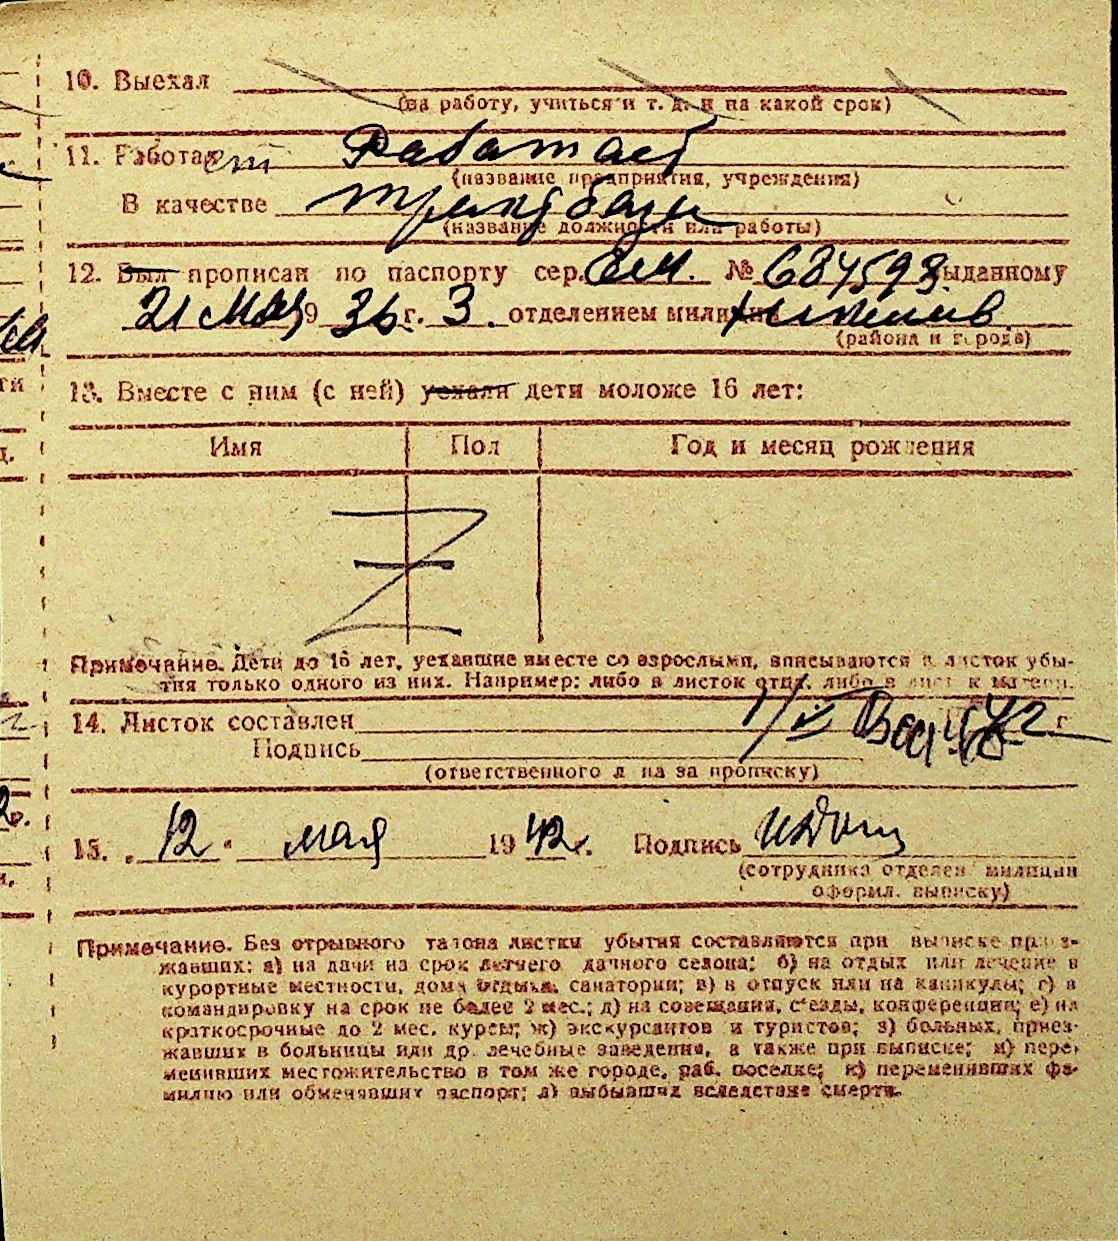 10. Выехал
(на работу, учиться и т. д. и на какой срок)
11. Работает Работает
(название предприятия, учреждения)
В качестве
(название должности или работы)
12. Был прописан по паспорту сер. № 684598 выданному
21 Мая 1936 г. 3. отделением милиции
(района и города)
13. Вместе с ним (с ней) уехали дети моложе 16 лет:
Имя Пол Год и месяц рождения
Z
Примечание. Дети до 16 лет, уехавшие вместе со взрослыми, вписываются в листок убы-
тия только одного из них. Например: либо в листок отца, либо в листок матери.
14. Листок составлен 42 г
Подпись
(ответственного лица за прописку)
15. „12" мая 1942г. Подпись
(сотрудника отделен милиции
оформл. выписку)
Примечание. Без отрывного талона листки убытия составляются при выписке приез-
жавших: а) на дачи на срок летнего дачного сезона; б) на отдых или лечение в
курортные местности, дома отдыха, санатории; в) в отпуск или на каникулы; г) в
командировку на срок не более 2 мес.; д) на совещания, съезды, конференции; е) на
краткосрочные до 2 мес. курсы; ж) экскурсантов и туристов; з) больных, приез-
жавших в больницы или др. лечебные заведения, а также при выписке; и) пере-
менивших местожительство в том же городе, раб. поселке; к) переменивших фа-
милию или обменявших паспорт; л) выбывших вследствие смерти.